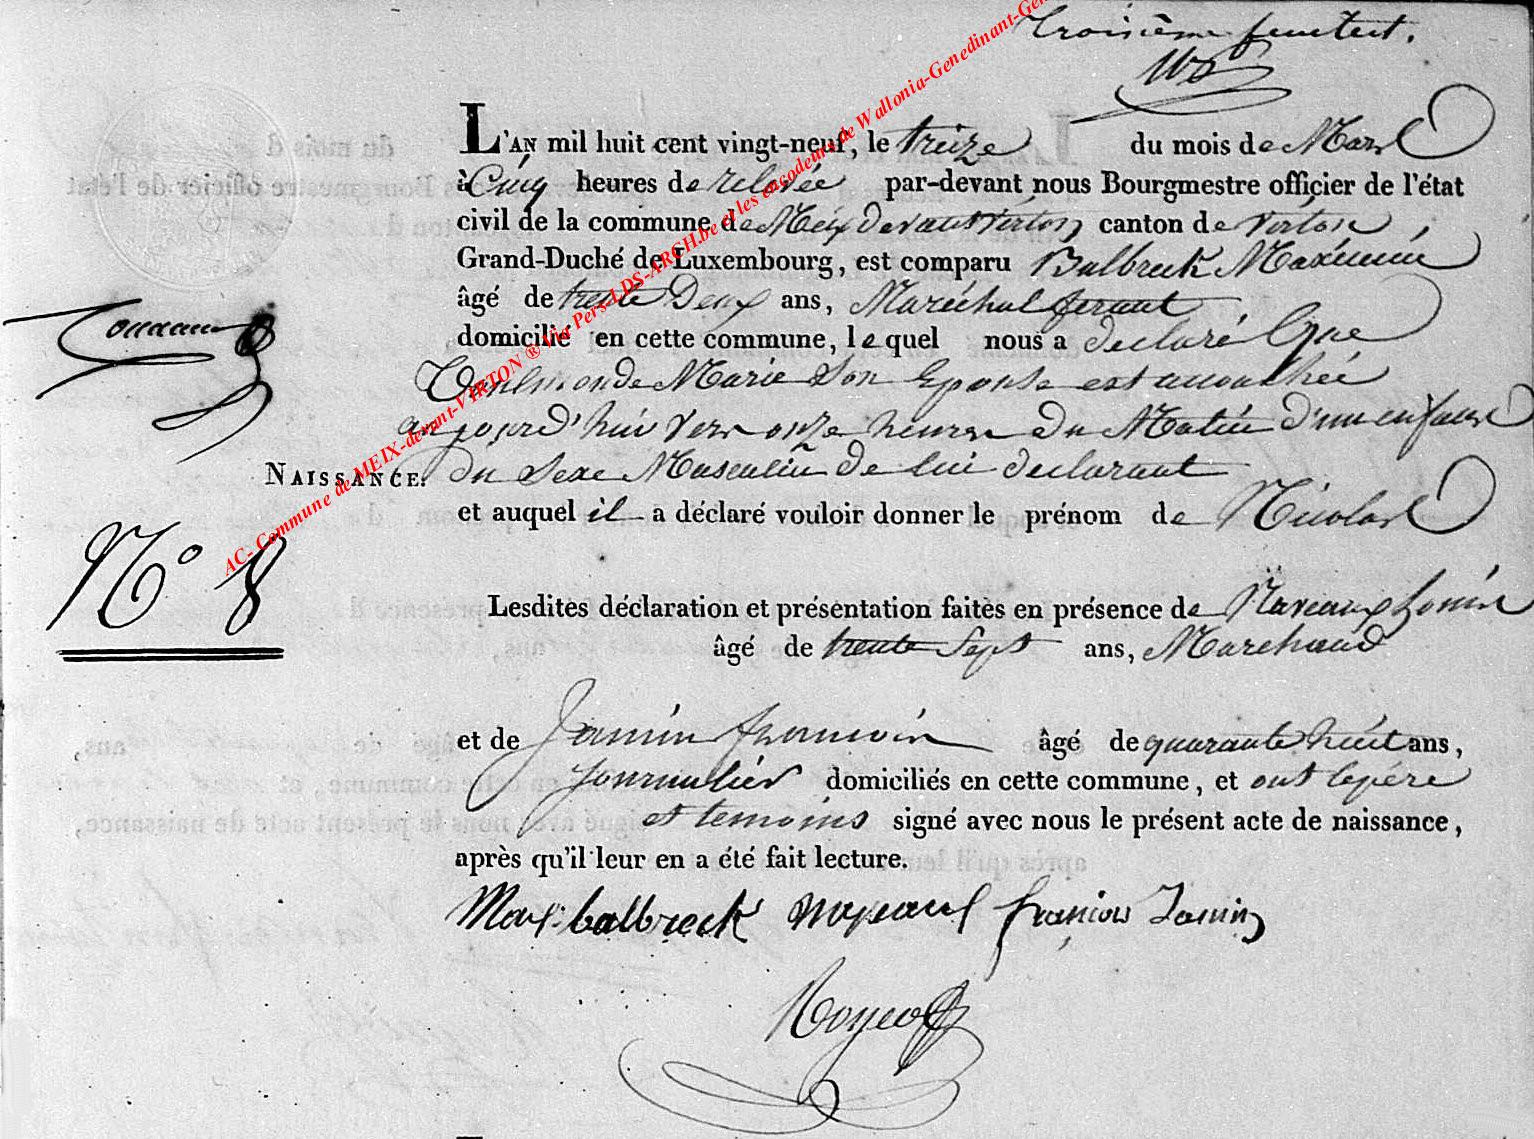 Troisième feuillet.
AC- Commune de MEIX-devant-VIRTON ® Via Pers-LDS-ARCH.be et les encodeurs de Wallonia-Genedinant-Gen
L'AN mil huit cent vingt-neuf, le treize du mois de Mars
à Cinq heures de relevée par-devant nous Bourgmestre officier de l'état
civil de la commune de Meix devant virton canton de virton,
Grand-Duché de Luxembourg, est comparu Balbreck Maximin
âgé de trente Deux ans, Maréchal ferant
domicilié en cette commune, lequel nous a declaré que
Marie Son Epouse est accouchée
aujourd'hui vers onze heures du Matin d'un enfant
NAISSANCE.
du Sexe Masculin de lui declarant
et auquel il a déclaré vouloir donner le prénom de Nicolas
N° 8
Lesdites déclaration et présentation faites en présence de Louis
âgé de trente Sept ans, Marchand
et de Jamin françois âgé de quarante huit ans,
Journalier domiciliés en cette commune, et ont le père
et temoins signé avec nous le présent acte de naissance,
après qu'il leur en a été fait lecture.
Max: balbreck françois Jamin